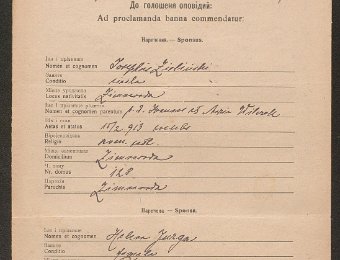 До голошеня оповідей:
Ad proclamanda banna commendatur:
Наречений. — Sponsus.
Імя і прізвище
Nomen et cognomen Josephus Zieliński
Заняте
Conditio
Місце уродженя
Locus nativitatis Zimnawoda
Імя і прізвище родичів
Nomen et cognomen parentum
Вік і стан
Aetas et status 913
Віроісповідане
Religio rom. cath.
Місце замешканя
Domicilium Zimnawoda
Ч. дому
Nr. domus 128
Парохія
Parochia Zimnawoda
Наречена — Sponsa.
Імя і прізвище
Nomen et cognomen Helena
Заняте
Conditio